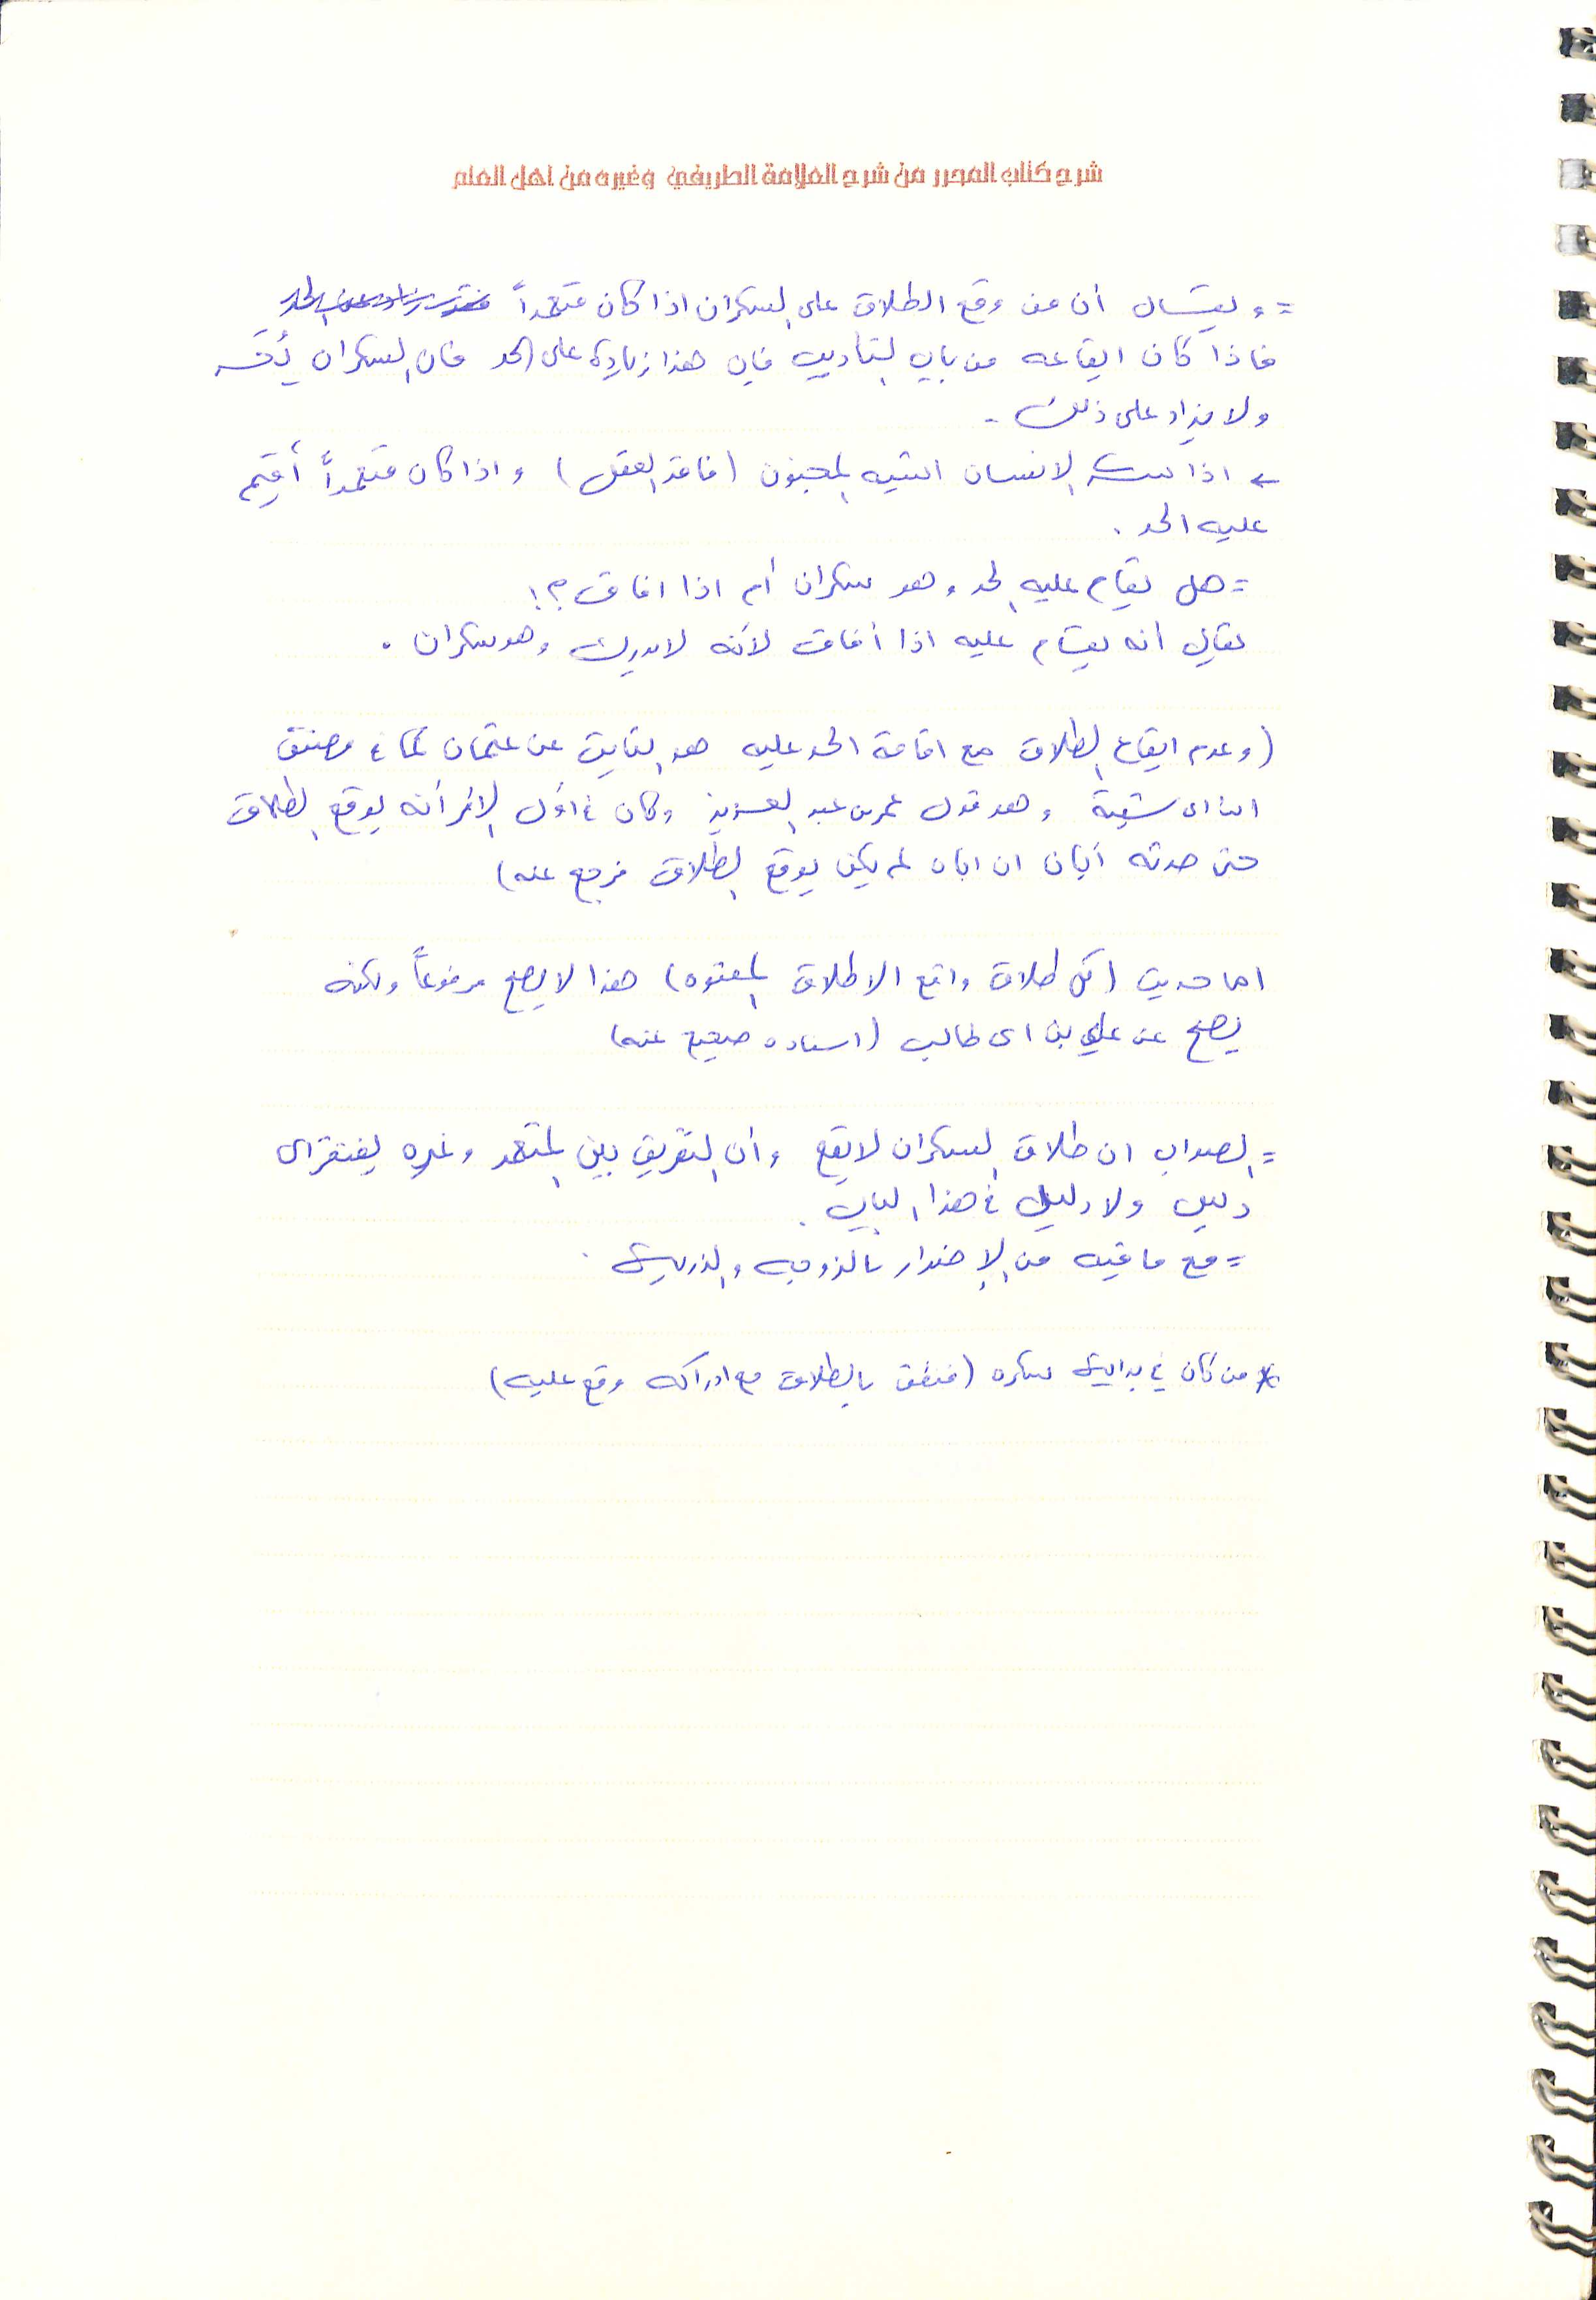 شرح كتاب المحرر من شرح العلامة الطريفي وغيره من اهل العلم
= ويقال أن من وقع الطلاق على السكران اذا كان متعمداً
فاذا كان ايقاعه من باب التأديب فإن هذا زيادة على الحد فان السكران يُحد
ولا يزاد على ذلك .
← اذا سكر الانسان اشبه المجنون (فاقد العقل) واذا كان متعمداً أقيم
عليه الحد .
= هل يقام عليه الحد وهو سكران أم اذا افاق ؟!
يقال أنه يقام عليه اذا أفاق لأنه لا يدرك وهو سكران .
(وعدم ايقاع الطلاق مع اقامة الحد عليه هو الثابت عن عثمان كما في مصنف
ابن ابي شيبة وهو قول عمر بن عبد العزيز وكان في أول الأمر أنه يوقع الطلاق
حتى حدثه أبان ان اباه لم يكن يوقع الطلاق فرجع عنه)
اما حديث (كل طلاق واقع الا طلاق المعتوه) هذا لا يصح مرفوعاً ولكنه
يصح عن علي بن ابي طالب (اسناده صحيح عنه)
= الصواب ان طلاق السكران لا يقع وأن التفريق بين المتعمد وغيره يفتقر الى
دليل ولا دليل في هذا الباب .
= مع ما فيه من الإضرار بالزوجه والذرية .
* من كان في بداية سكره (فنطق بالطلاق مع ادراكه وقع عليه)